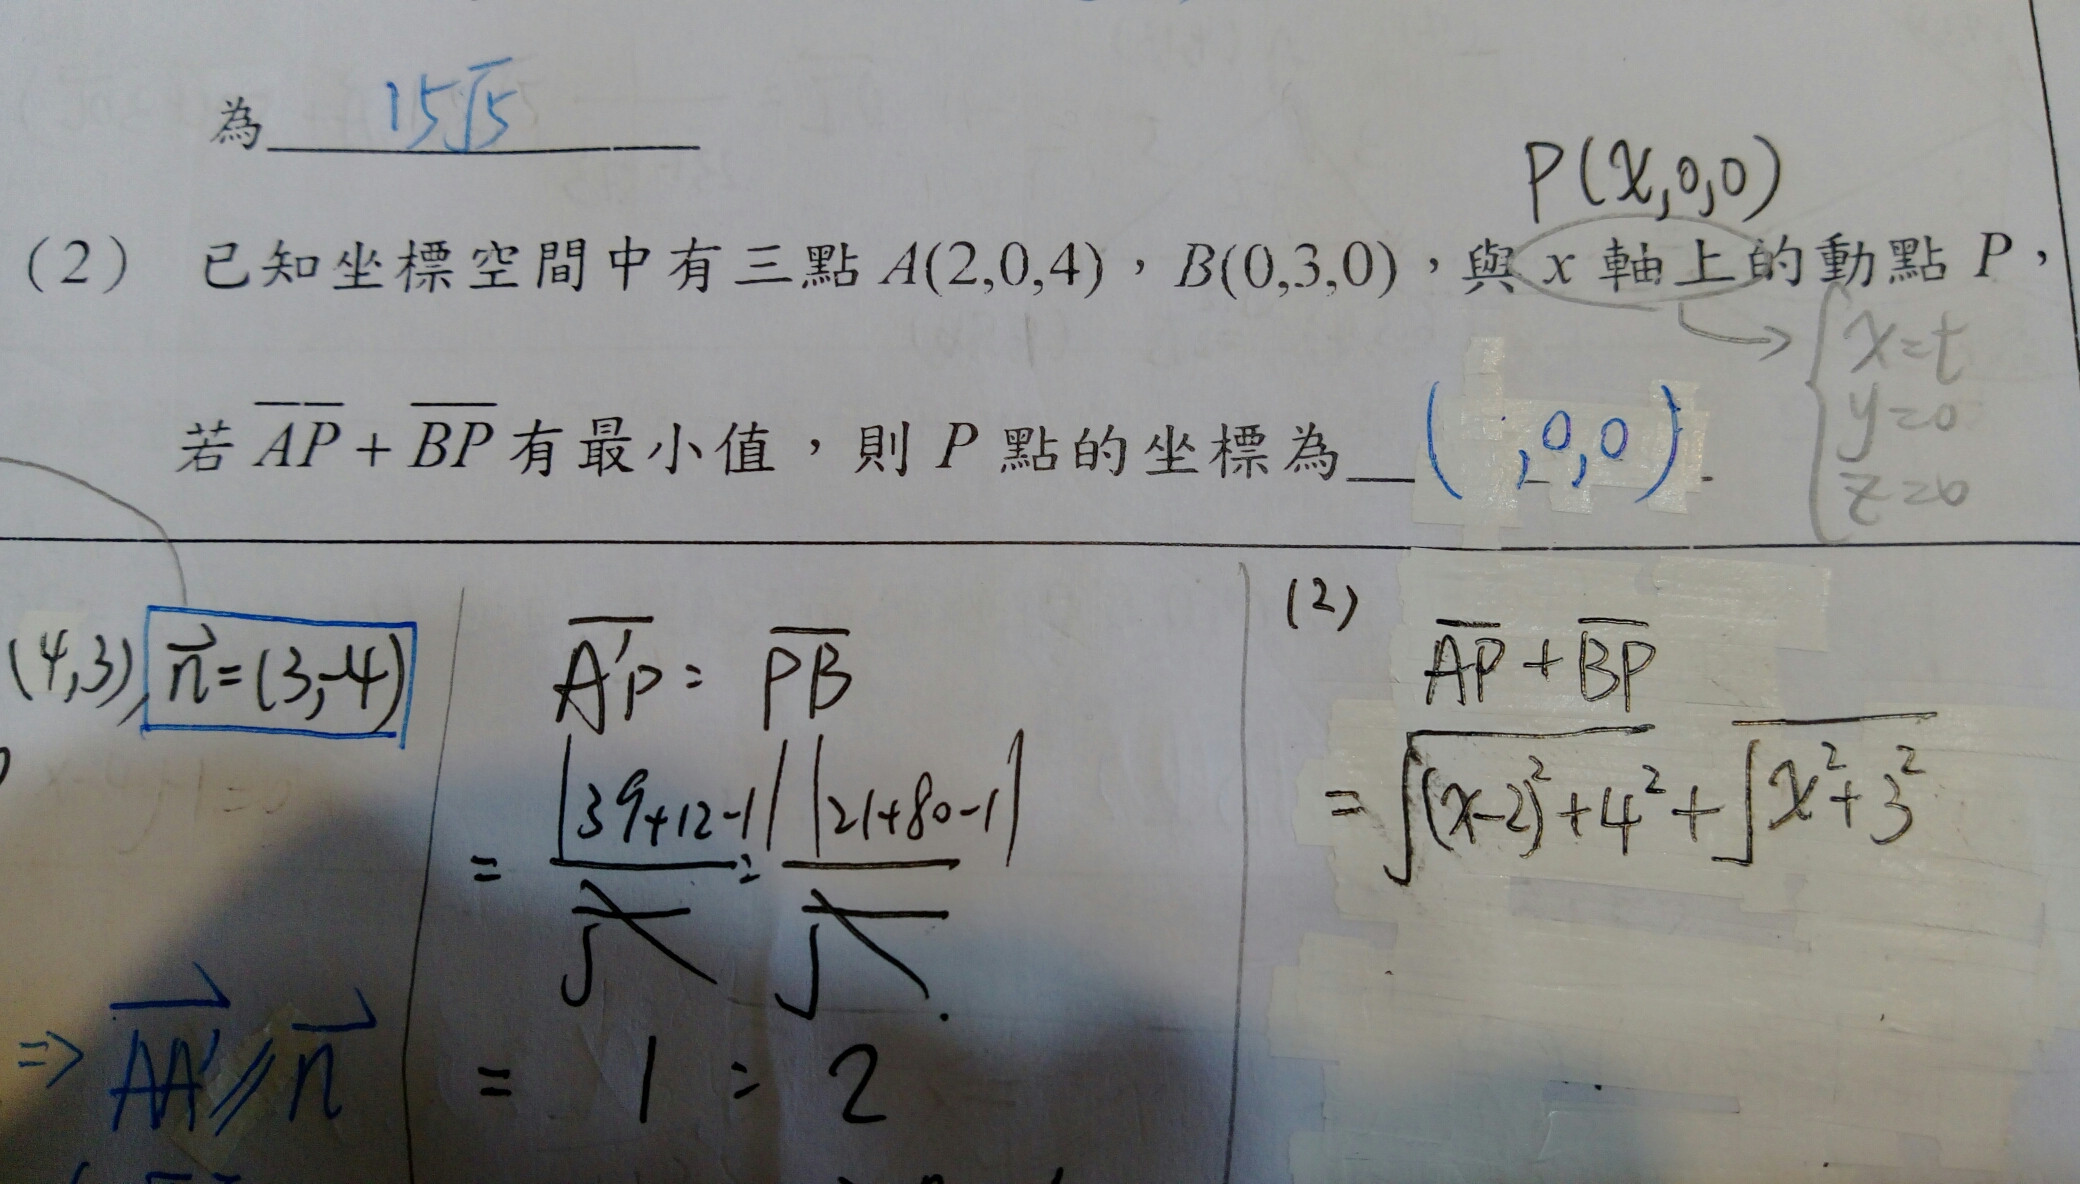 為 15√5
P(x,0,0)
(2) 已知坐標空間中有三點 A(2,0,4),B(0,3,0),與 x 軸上的動點 P,
x=t
y=0
z=0
若 AP + BP 有最小值,則 P 點的坐標為 ( ,0,0)
(4,3), n=(3,-4)
A'P : PB
= |39+12-1| : |21+80-1|
= 1 : 2
⇒ AA' // n
(2)
AP + BP
= √(x-2)²+4² + √x²+3²